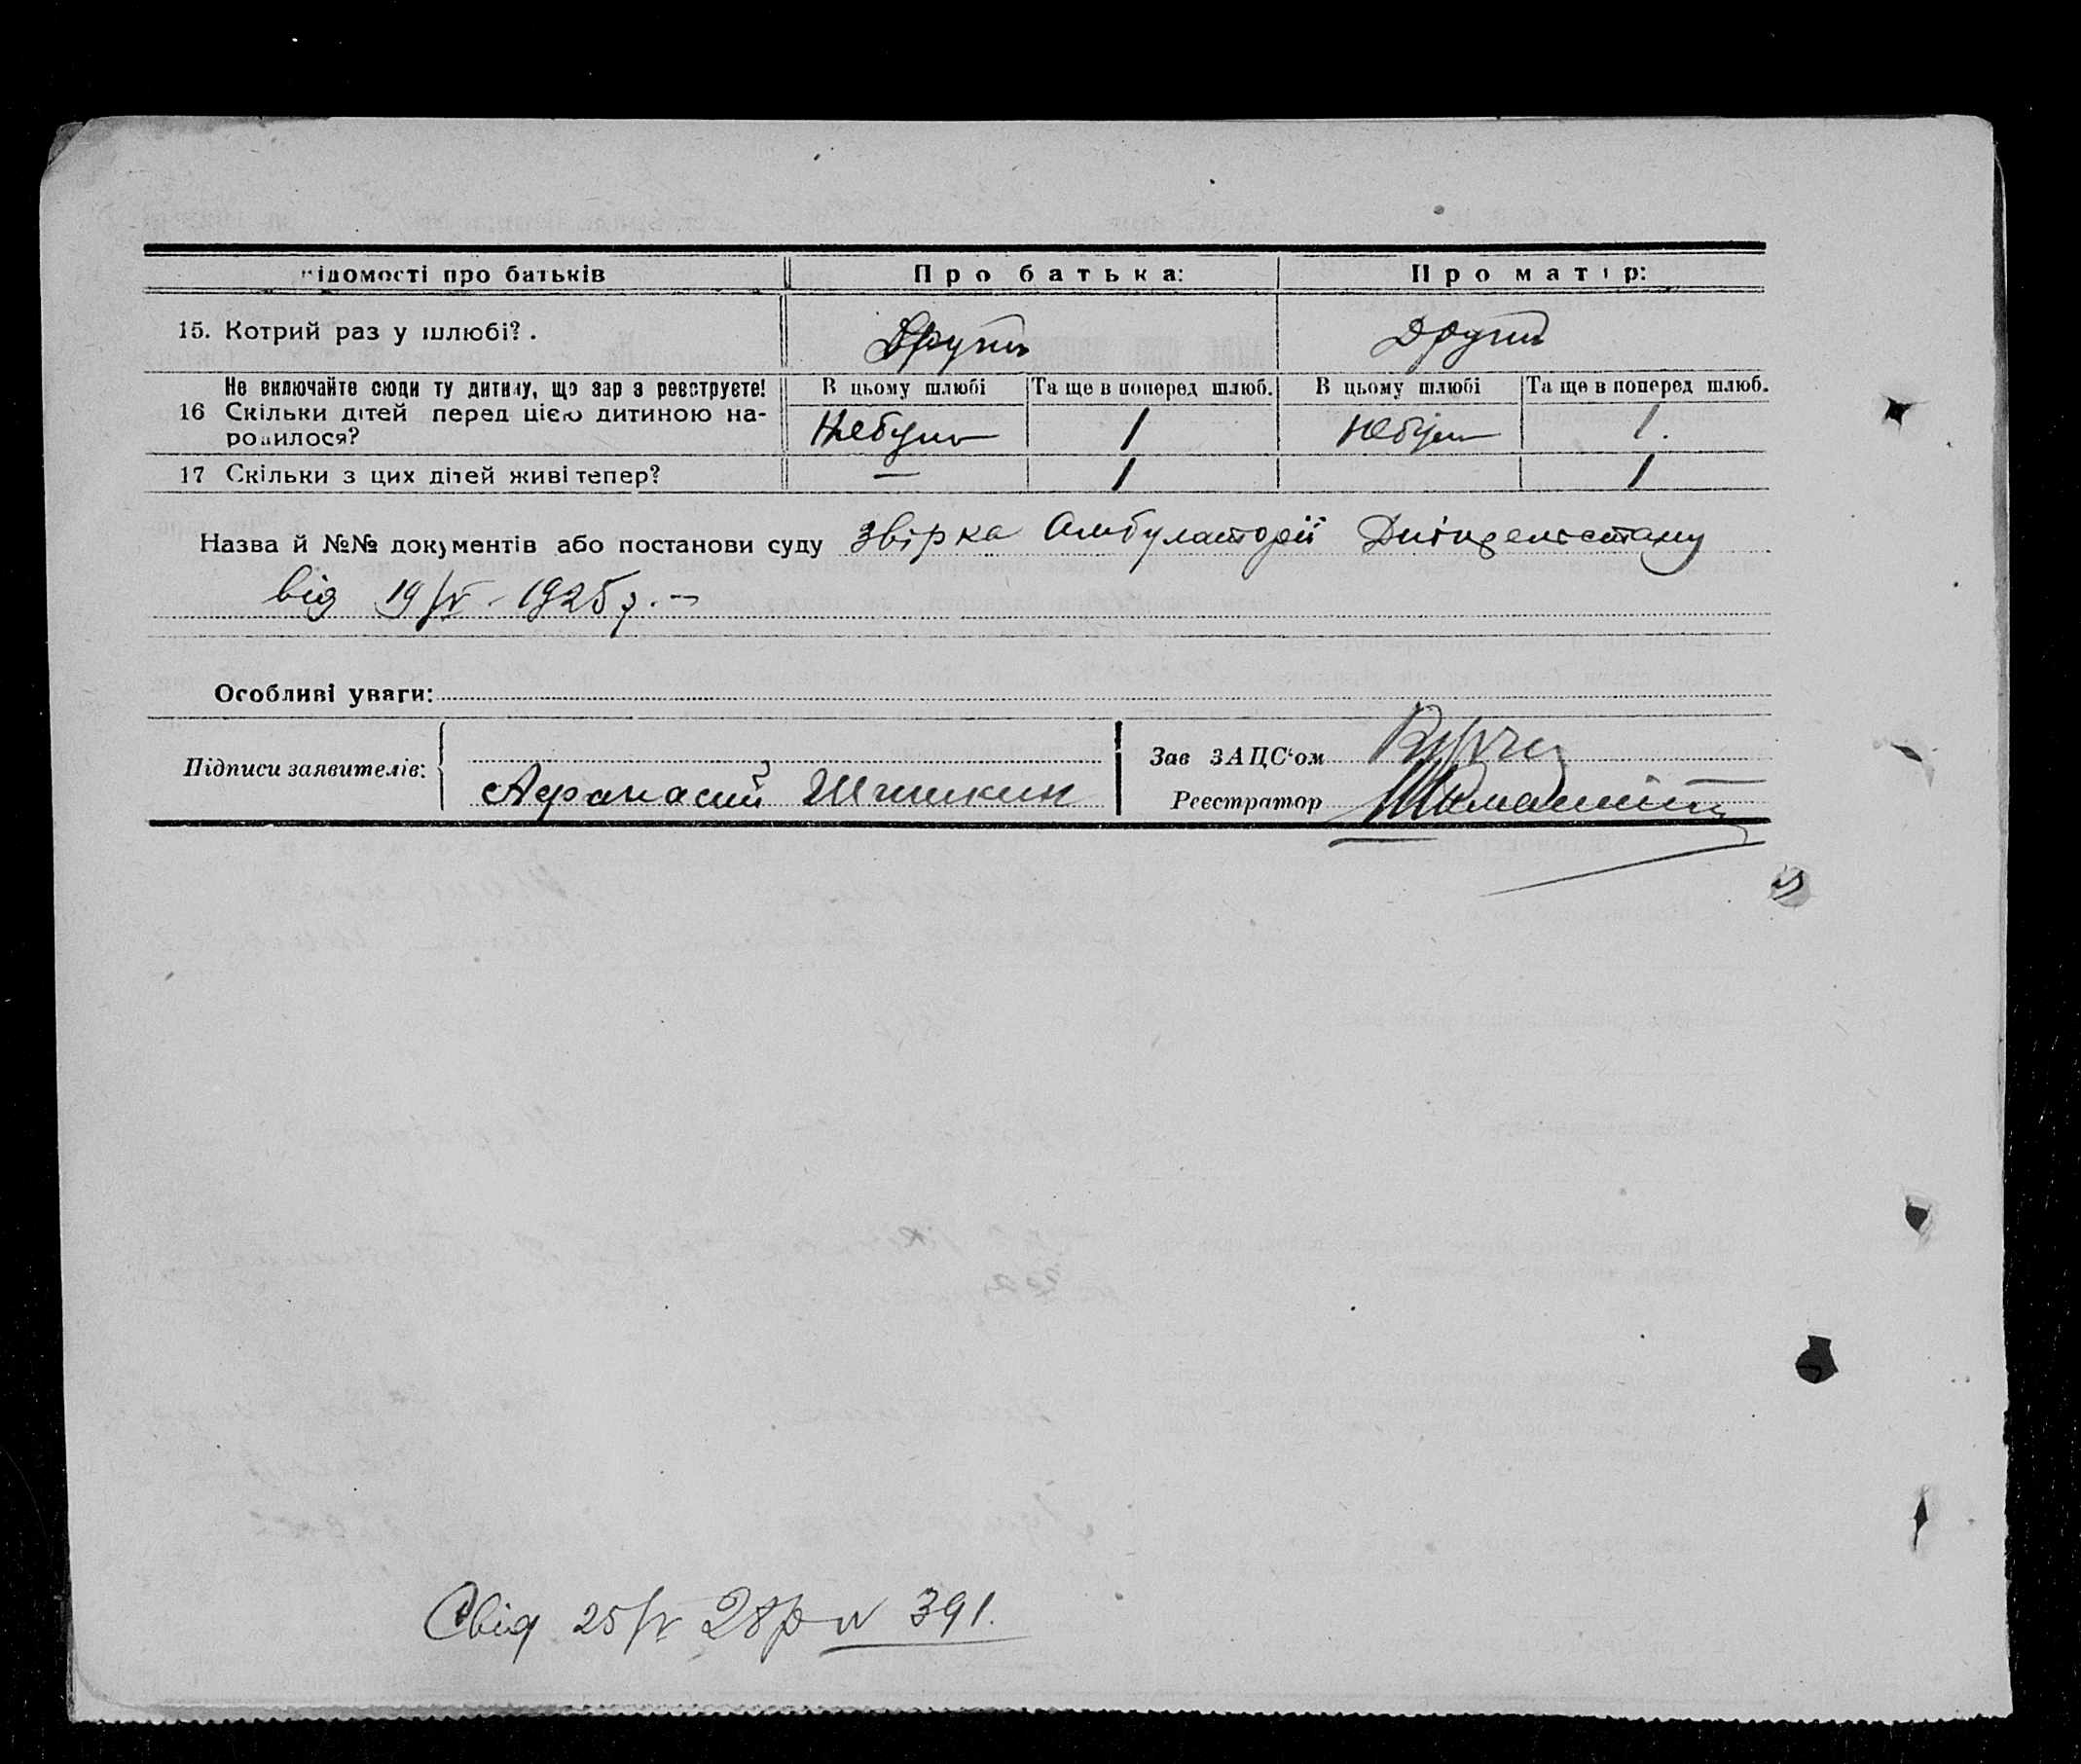 ідомості про батьків Про батька: Про матір:
15. Котрий раз у шлюбі?. Другий Другий
Не включайте сюди ту дитину, що зараз реєструєте! В цьому шлюбі Та ще в поперед шлюб. В цьому шлюбі Та ще в поперед шлюб.
16 Скільки дітей перед цією дитиною на- Небуло 1 Небуло 1.
родилося?
17 Скільки з цих дітей живі тепер? — 1 1
Назва й №№ документів або постанови суду Звірка Амбулаторії
від 19/IV - 1925 р. –
Особливі уваги:
Підписи заявителів: Зав ЗАЦС'ом
Афанасий Шишкин Реєстратор
Свід 25/IV 28 р N 391.